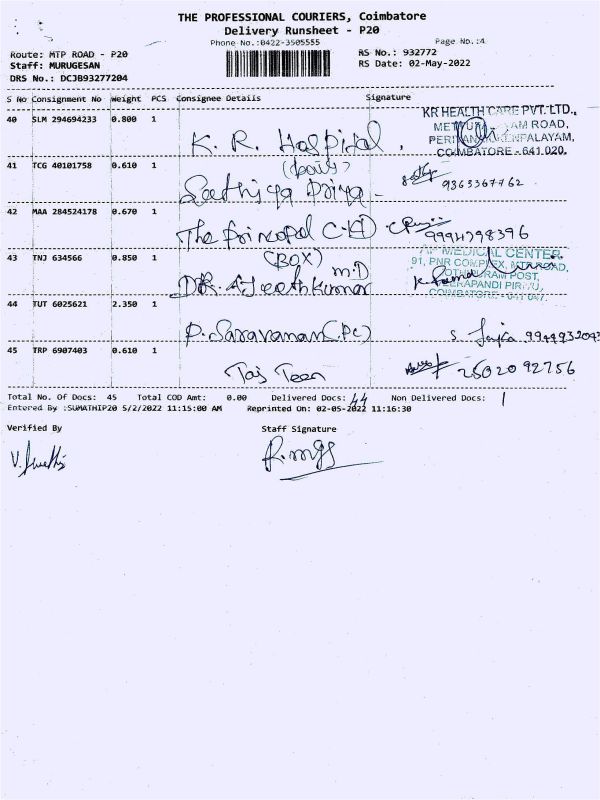 THE PROFESSIONAL COURIERS, Coimbatore
Delivery Runsheet - P20
Phone No.:0422-3505555
Page No.:4
Route: MTP ROAD - P20
Staff: MURUGESAN
DRS No.: DCJB93277204
RS No.: 932772
RS Date: 02-May-2022
S No Consignment No Weight PCS Consignee Details Signature
40 SLM 294694233 0.800 1 K. R. Hospital,
KR HEALTH CARE PVT. LTD.,
ROAD,
COIMBATORE - 641 020.
41 TCG 40101758 0.610 1 Sathiya Priya - 9363367762
42 MAA 284524178 0.670 1 The Principal 9994798396
43 TNJ 634566 0.850 1 (BOX) DR. Ajeethkumar M.D
MEDICAL CENTER
91, PNR COMPLEX, MTP ROAD,
POST,
COIMBATORE - 641 047.
44 TUT 6025621 2.350 1 P. Saravanan (PC)
45 TRP 6907403 0.610 1 Taj Teen 2502092756
Total No. Of Docs: 45 Total COD Amt: 0.00 Delivered Docs: 44 Non Delivered Docs: 1
Entered By :SUMATHIP20 5/2/2022 11:15:00 AM Reprinted On: 02-05-2022 11:16:30
Verified By Staff Signature